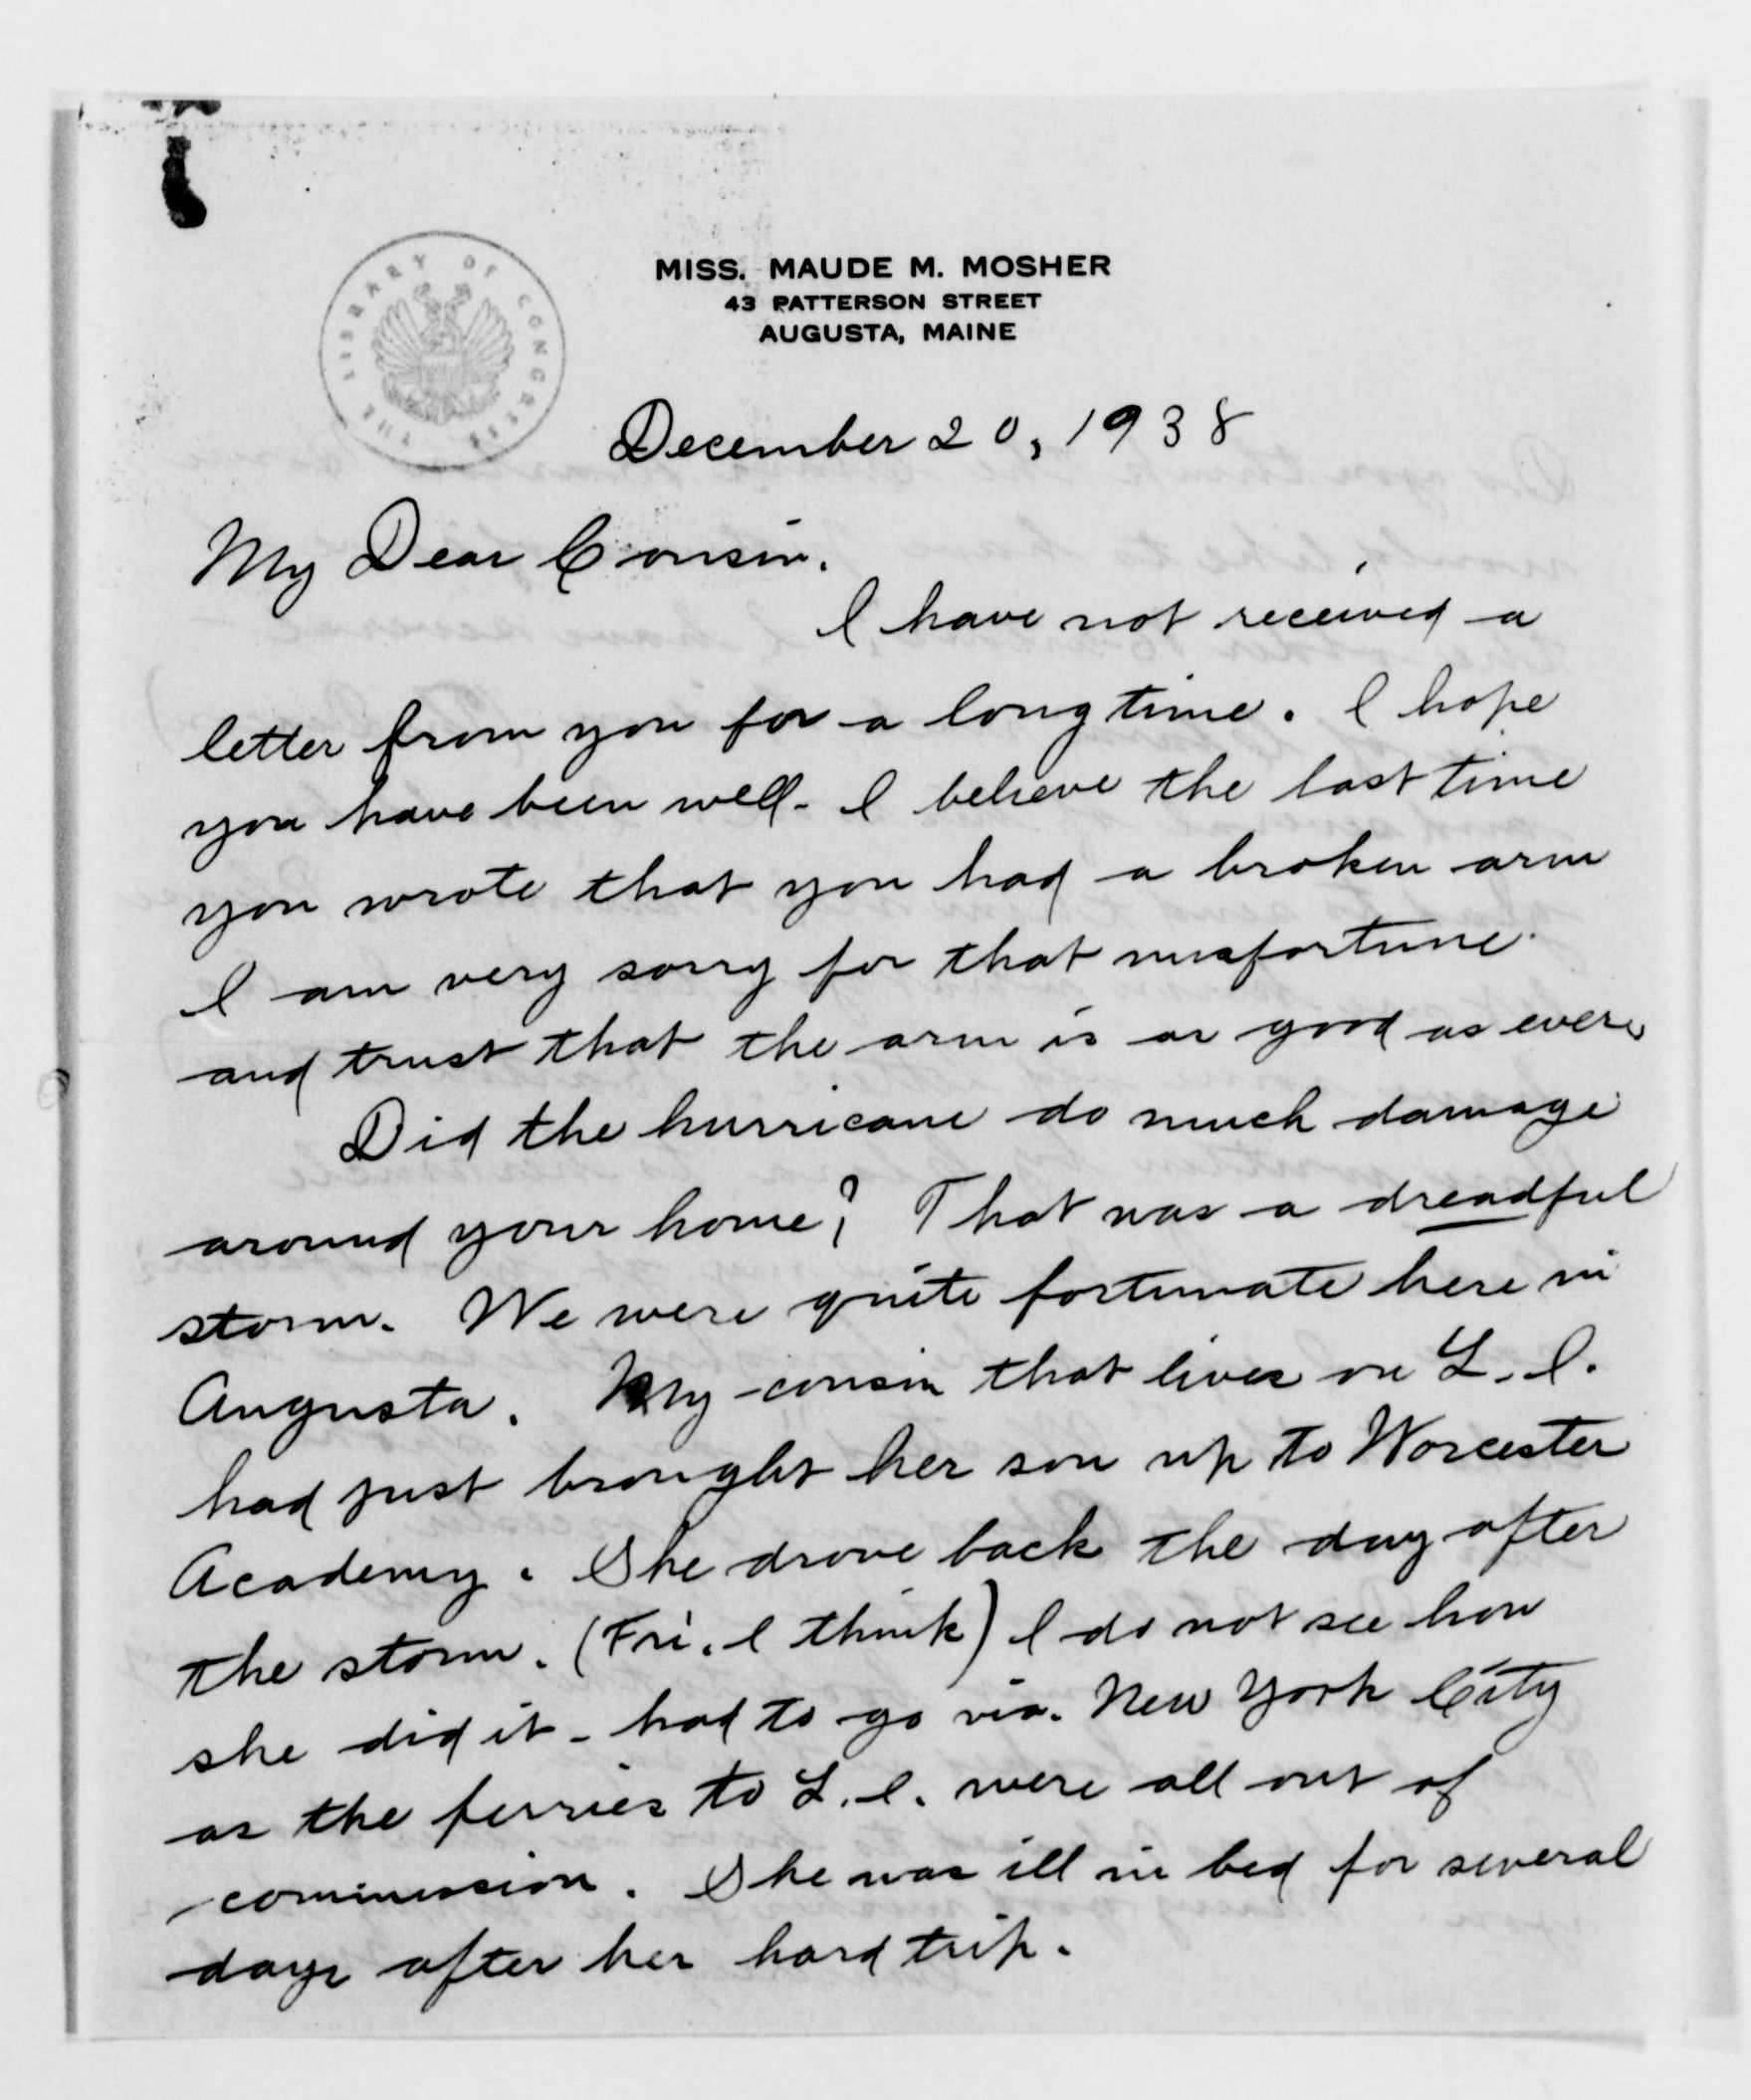 THE LIBRARY OF CONGRESS
MISS. MAUDE M. MOSHER
43 PATTERSON STREET
AUGUSTA, MAINE
December 20, 1938
My Dear Cousin.
I have not received a
letter from you for a long time. I hope
you have been well. I believe the last time
you wrote that you had a broken arm
I am very sorry for that misfortune.
and trust that the arm is as good as ever.
Did the hurricane do much damage
around your home? That was a dreadful
storm. We were quite fortunate here in
Augusta. My cousin that lives on L. I.
had just brought her son up to Worcester
Academy. She drove back the day after
the storm. (Fri. I think) I do not see how
she did it - had to go via. New York City
as the ferries to L. I. were all out of
commission. She was ill in bed for several
days after her hard trip.